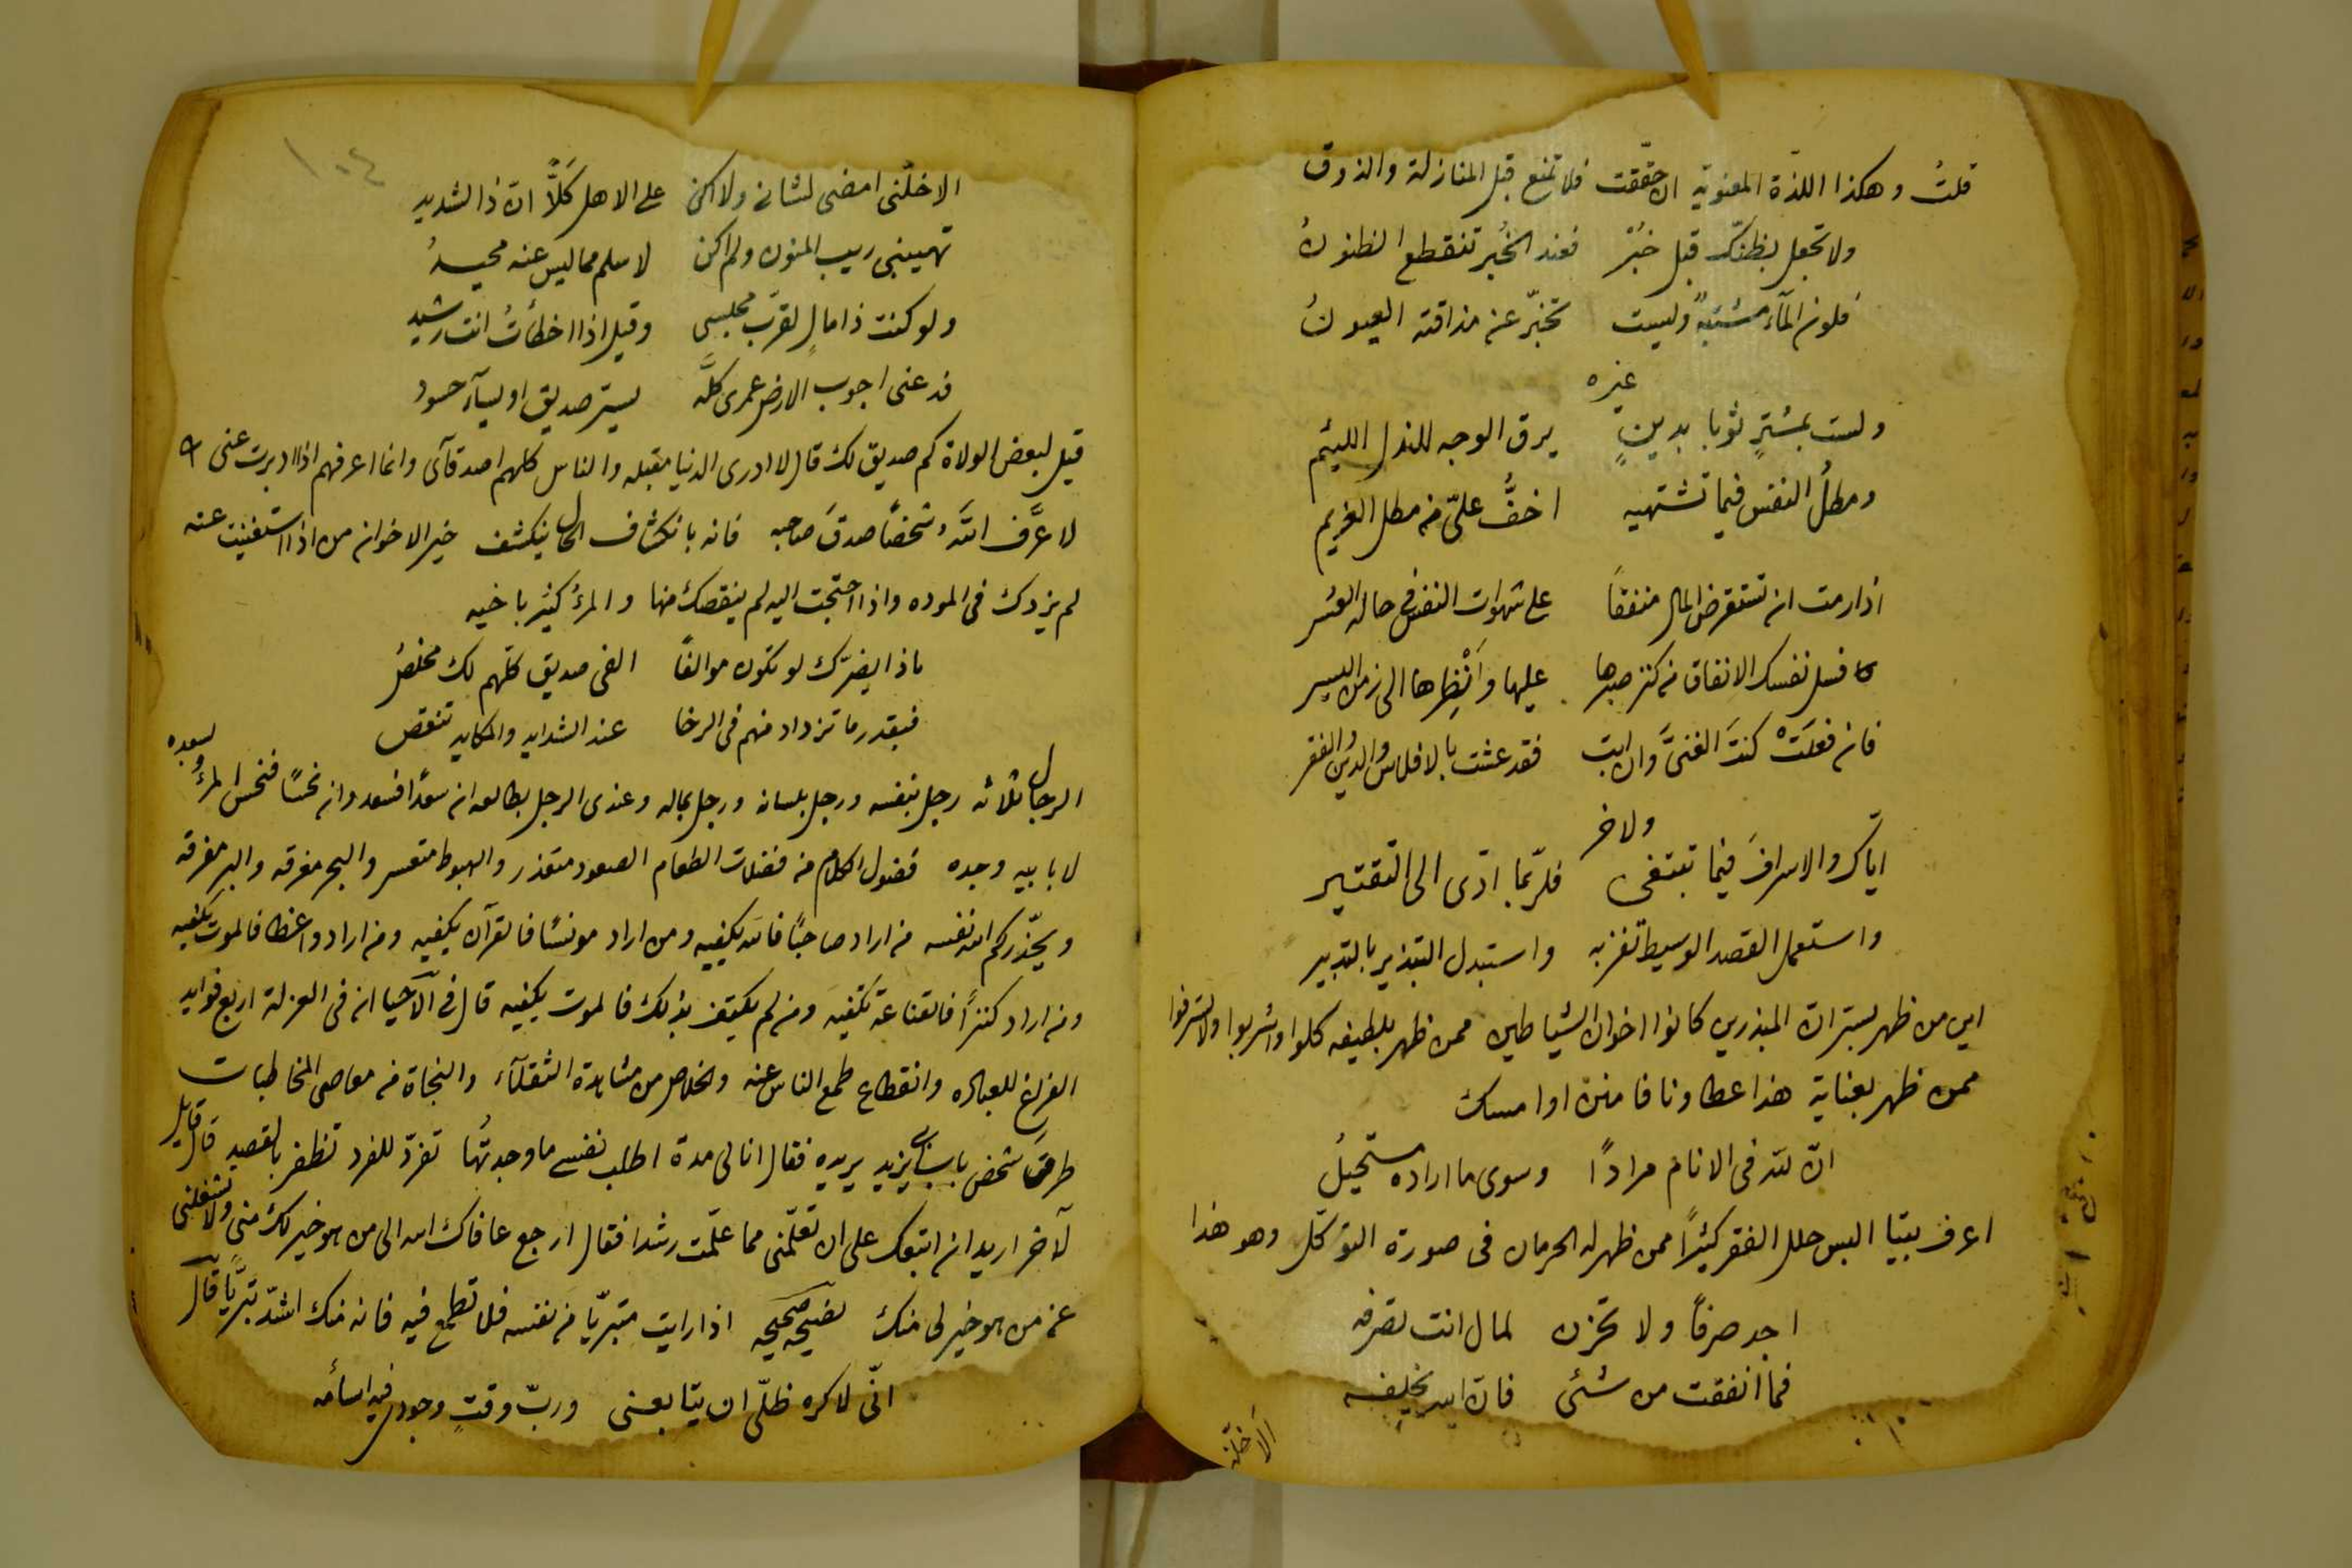 قلتُ وهكذا اللذّة المعنويّة ان حقّقت فلا تمنع قبل المنازلة والذوق
ولا تجعل بظنّك قبل خبُرٍ فعند الخُبر تنقطع الظنونُ
فلون المآء مشتبهٌ وليست تخبّر عن مذاقته العيونُ
غيره
ولست بمشترٍ ثوبا بدينٍ يرق الوجه للنذل اللئيم
ومطلُ النفس فيما تشتهيه اخفُّ علىّ من مطل الغريم
اذا رمت ان تستقرض المال منفقاً على شهوات النفس فى حالة العسر
فسل نفسك الانفاق من كنز صبرها عليها وانْظِرها الى زمن اليسر
فان فعلَتْ كنتَ الغنىَّ وان ابت فقد عشت بالافلاس والدين والفقر
ولاخر
ايّاك والاسرافَ فيما تبتغى فلربّما ادّى الى التقتير
واستعمل القصد الوسيط تفز به واستبدل التبذير بالتدبير
اين من ظهر بستر ان المبذرين كانوا اخوان الشياطين ممن ظهر بلطيفه كلوا واشربوا ولا تسرفوا
ممن ظهر بعناية هذا عطاونا فامنن او امسك
انّ لله فى الانام مرادًا وسوى ما اراده مستحيلُ
اعرف بيتيا البس حلل الفقر كثيرًا ممن ظهر له الحرمان فى صورة التوكّل وهو هذا
اجد صرفاً ولا تحزن لمال انت تصرفه
فما انفقت من شئى فان الله يخلفه
الاخلّنى
١٠٤
الاخلّنى امضى لشانى ولا اكن على الاهل كَلاًّ انّ ذا لشديد
تهيبنى ريب المنون ولم اكن لاسلم مما ليس عنه محيدُ
ولو كنت ذا مالٍ لقرّب مجلسى وقيل اذا اخطأتُ انت رشيد
فدعنى اجوب الارض عمرى كلَّه يسرّ صديق او يسآء حسود
قيل لبعض الولاة كم صديق لك قال لا ادرى الدنيا مقبله والناس كلهم اصدقآئى وانما اعرفهم اذا ادبرت عنى
لا عرَّف اللهُ شخصًا صدقَ صاحبه فانه بانكشاف الحال ينكشف خير الاخوان من اذا استغنيت عنه
لم يزدك فى الموده واذا احتجت اليه لم ينقصك منها والمرءُ كثير باخيه
ماذا يضرّك لو تكون موالفًا الفى صديق كلّهم لك مخلصُ
فبقدر ما تزداد منهم فى الرخا عند الشدايد والمكايد تنقص
الرجال ثلاثه رجل بنفسه ورجل بلسانه ورجل بماله وعندى الرجل بطالعه ان سعدًا فسعد وان نحسًا فنحس المرءُ وبسعده
لا بابيه وجده فضول الكلام من فضلات الطعام الصعود متعذر والهبوط متعسر والبحر مغرقه والبر مفرقه
ويحذّركم الله نفسه من اراد صاحبًا فالله يكفييه ومن اراد مونسًا فالقرآن يكفيه ومن اراد واعظا فالموت يكفيه
ومن اراد كنزاً فالقناعة تكفيه ومن لم يكتف بذلك فالموت يكفيه قال فى الآحيا ان فى العزلة اربع فوايد
الفراغ للعباده وانقطاع طمع الناس عنه والخلاص من مشاهدة الثقلآء والنجاة من معاصى المخاطبات
طرق شخص باب ابى يزيد يريده فقال انا لى مدة اطلب نفسى ما وجدتُها تفرّد للفرد تظفر بالقصد قال قايل
لآخر اريد ان اتبعك على ان تعلّمنى مما علّمت رشدا فقال ارجع عافاك الله الى من هو خير لك منى ولا تشغلنى
عمن هو خير لى منك نصيحه صحيحه اذا رايت متبرّيًا من نفسه فلا تطمع فيه فانه منك اشدّ تبرّيًا قال
انّى لاكره ظلّى ان يتابعنى وربّ وقتٍ وجودى فيه اسأمه